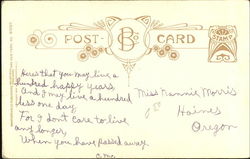 POST CARD
B
STAMP
Heres that you may live a
hundred happy years,
And I may live a hundred
less one day
For I don't care to live
any longer,
When you have passed away.
Miss Nannie Morris
Haines
Oregon